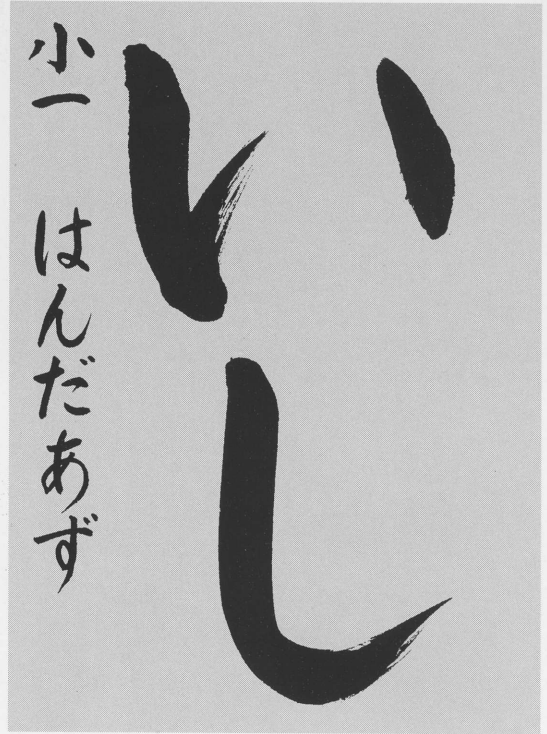 いし
小一 はんだあず